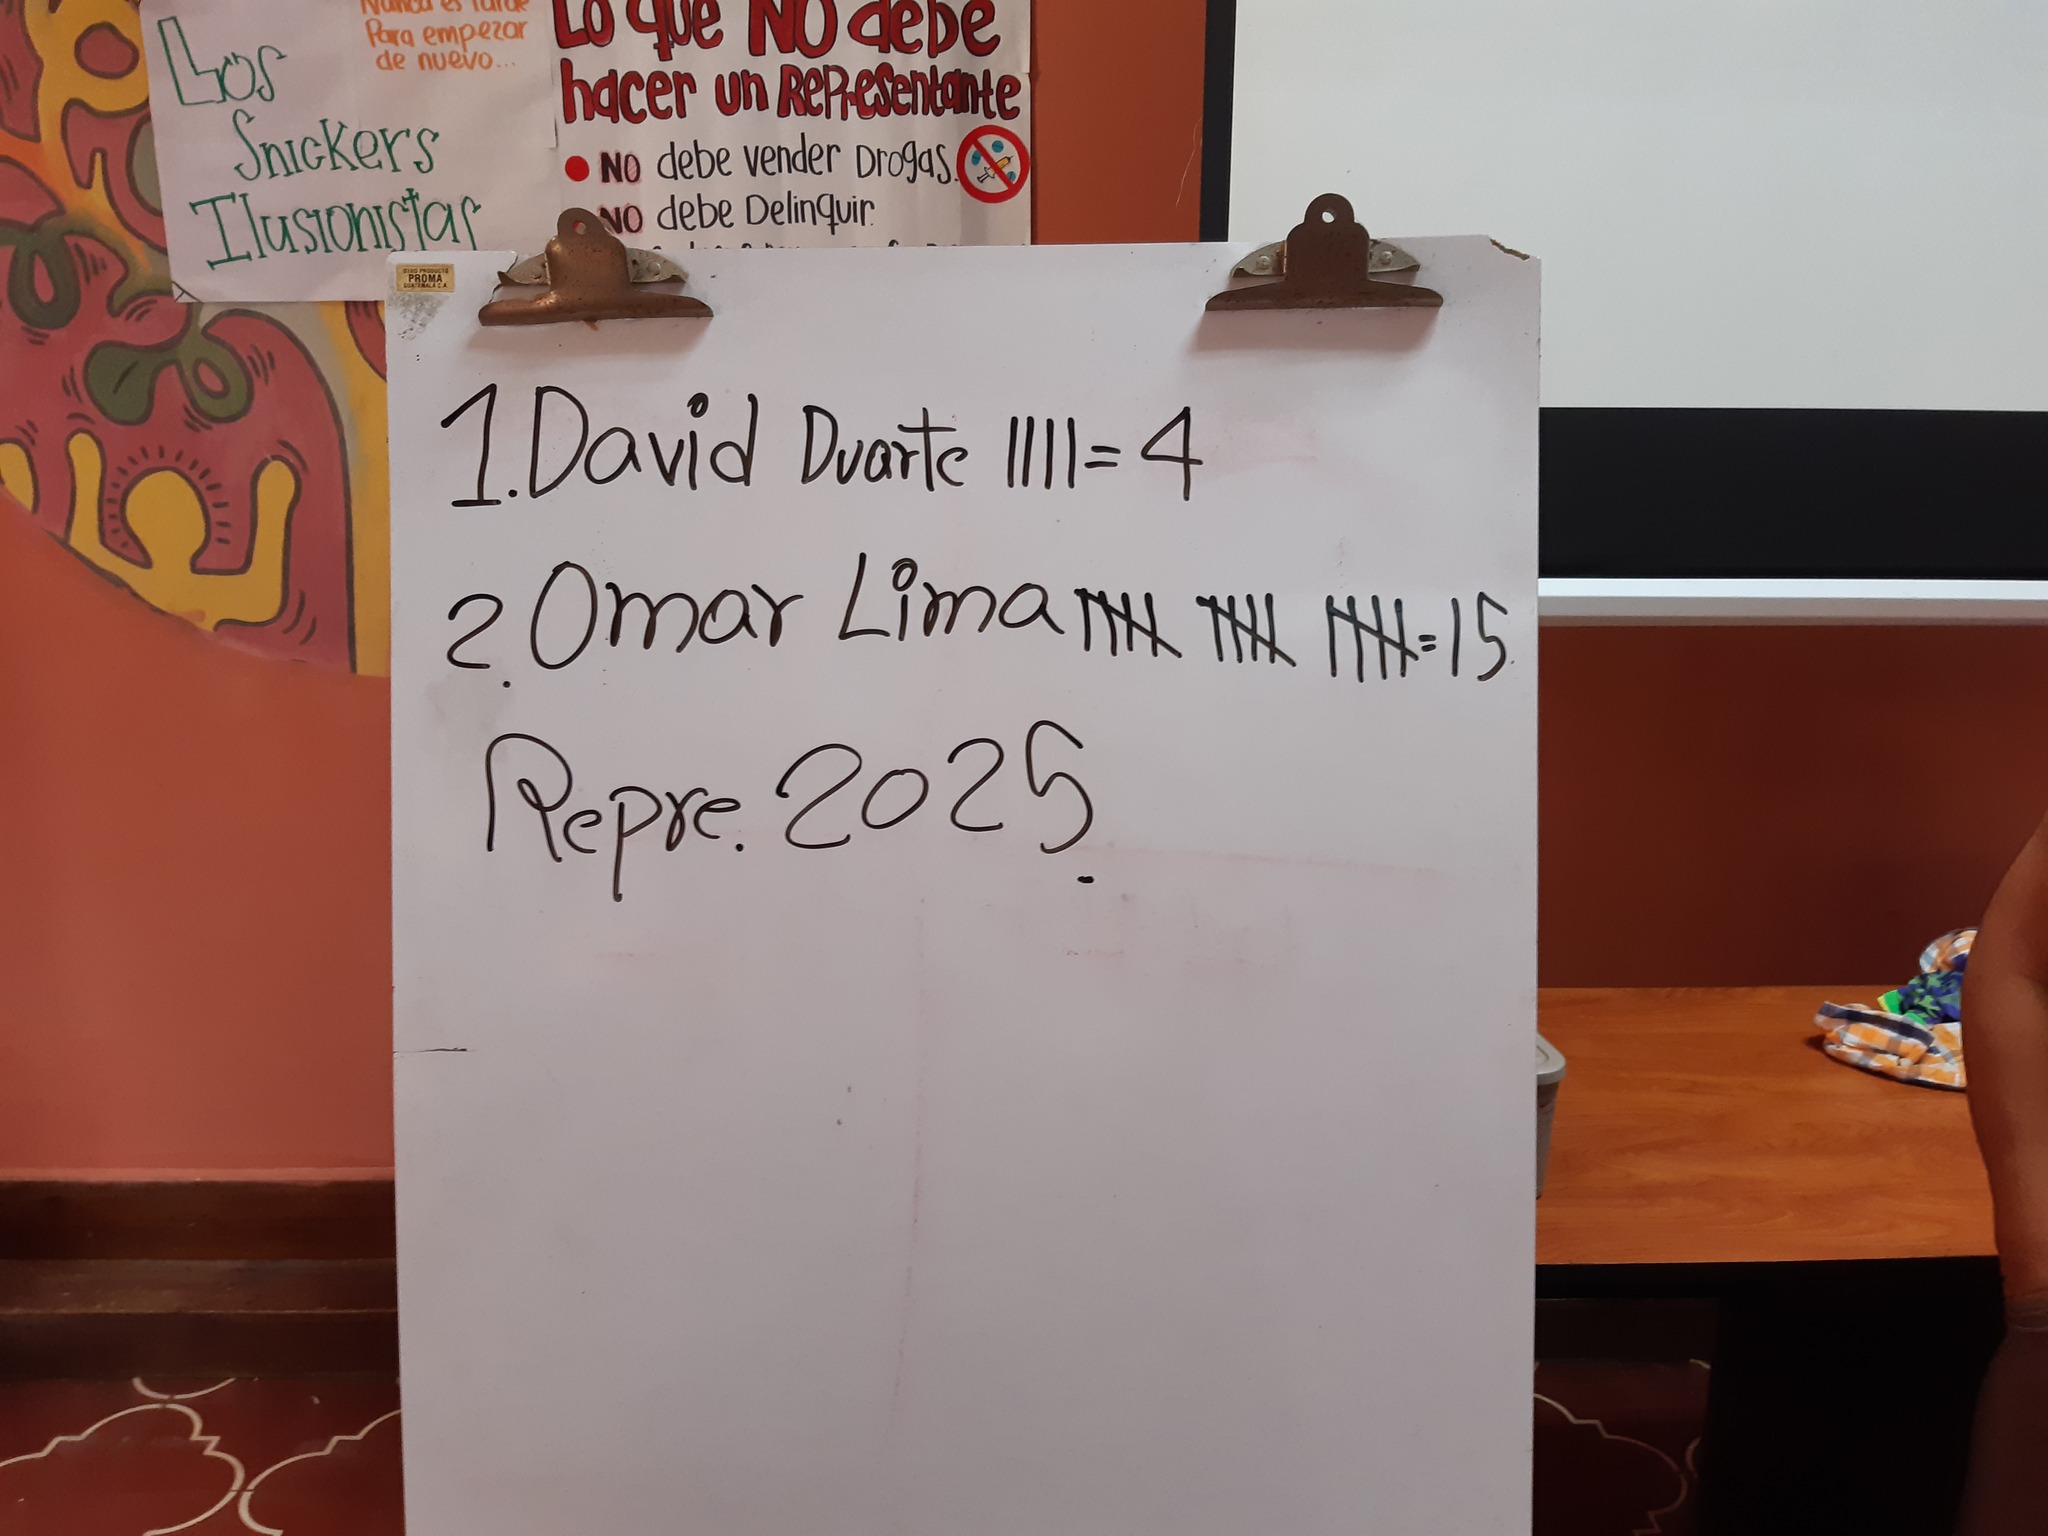 Nunca es tarde
Para empezar
de nuevo...
Los
Snickers
Ilusionistas
Lo que NO debe
hacer un Representante
NO debe vender Drogas.
NO debe Delinquir.
PROMA
GUATEMALA C.A.
1. David Duarte |||| = 4
2. Omar Lima |||| |||| |||| = 15.
Repre. 2025.